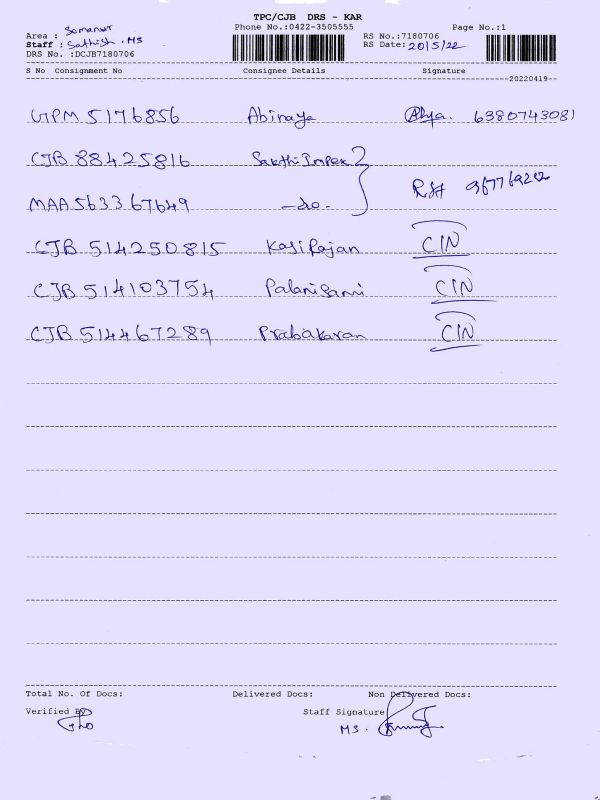 TPC/CJB DRS - KAR
Phone No.:0422-3505555 Page No.:1
Area : Somanur
Staff : Sathish . MS
DRS No. :DCJB7180706
RS No.:7180706
RS Date: 20/5/22
S No Consignment No Consignee Details Signature
20220419
GPM 5176856 Abinaya 6380743081
CJB 88425816 Sakthi Impex
MAA 563367649 -do-
CJB 514250815 Kasi Rajan CIN
CJB 514103754 Palanisami CIN
CJB 514467289 Prabakaran CIN
Total No. Of Docs: Delivered Docs: Non Delivered Docs:
Verified By
Staff Signature
MS.